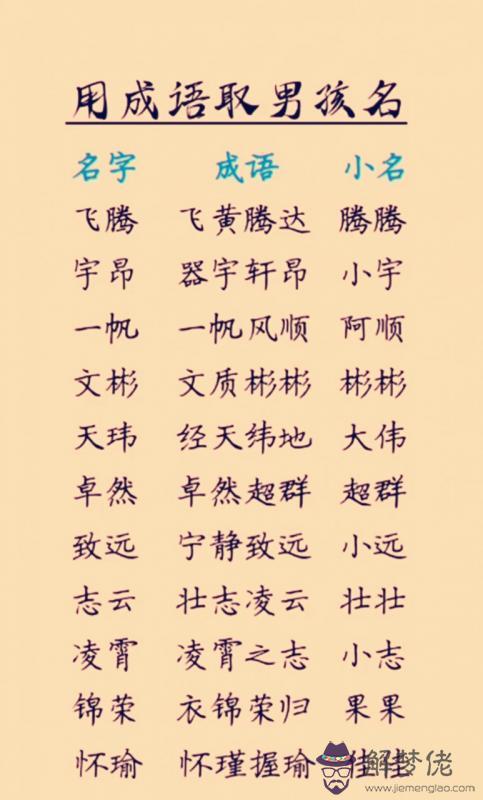 用成语取男孩名
名字 成语 小名
飞腾 飞黄腾达 腾腾
宇昂 器宇轩昂 小宇
一帆 一帆风顺 阿顺
文彬 文质彬彬 彬彬
天玮 经天纬地 大伟
卓然 卓然超群 超群
致远 宁静致远 小远
志云 壮志凌云 壮壮
凌霄 凌霄之志 小志
锦荣 衣锦荣归 果果
怀瑜 怀瑾握瑜
解梦佬
www.jiemenglao.com